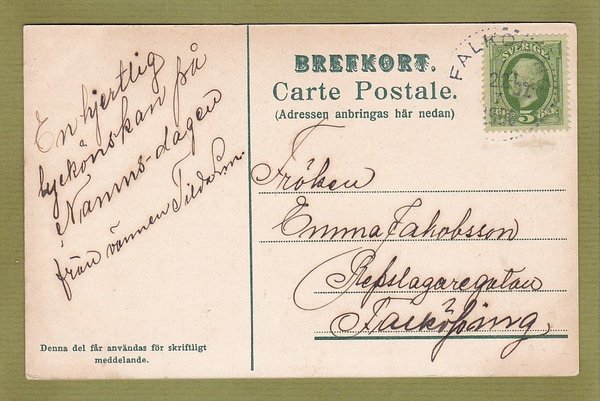 En hjertlig
lyckönskan på
Namns-dagen
från vännen
Denna del får användas för skriftligt
meddelande.
BREFKORT.
Carte Postale.
(Adressen anbringas här nedan)
FALKÖ
SVERIGE
5
Fröken
Emma Jakobsson
Repslagaregatan
Falköping